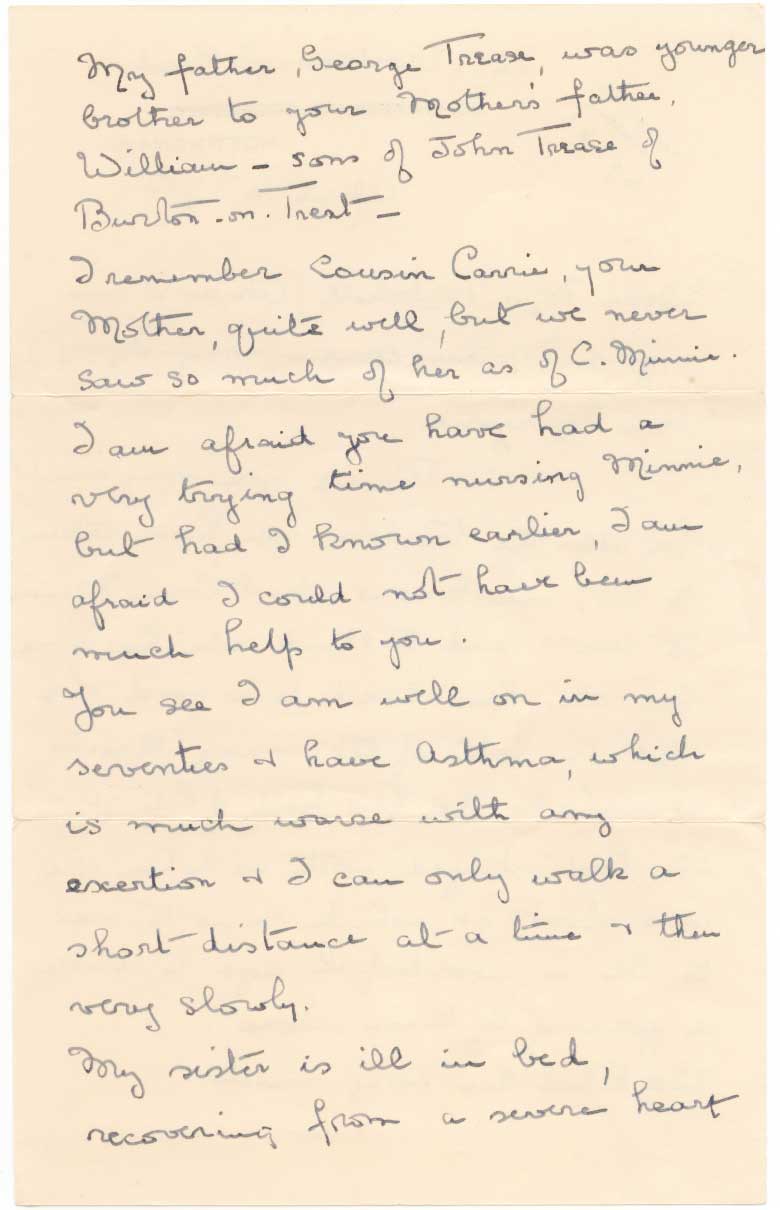 My father, George Trease, was younger
brother to your Mother's father,
William – sons of John Trease of
Burton-on-Trent –
I remember Cousin Carrie, your
Mother, quite well, but we never
saw so much of her as of C. Minnie.
I am afraid you have had a
very trying time nursing Minnie,
but had I known earlier, I am
afraid I could not have been
much help to you.
You see I am well on in my
seventies & have Asthma, which
is much worse with any
exertion & I can only walk a
short distance at a time & then
very slowly.
My sister is ill in bed,
recovering from a severe heart